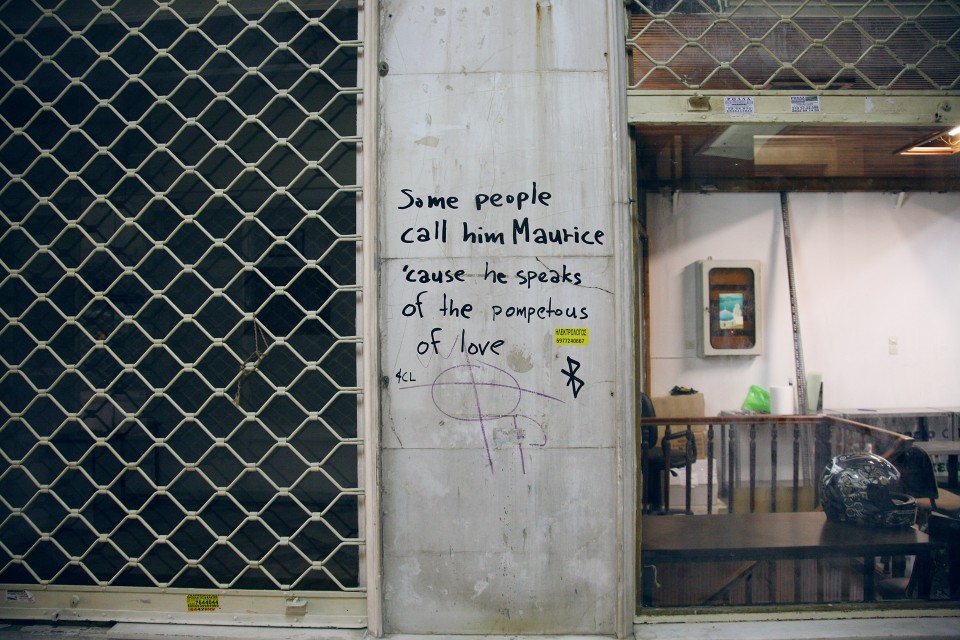 Some people
call him Maurice
'cause he speaks
of the pompetous
of love
ΗΛΕΚΤΡΟΛΟΓΟΣ
6977240667
4CL